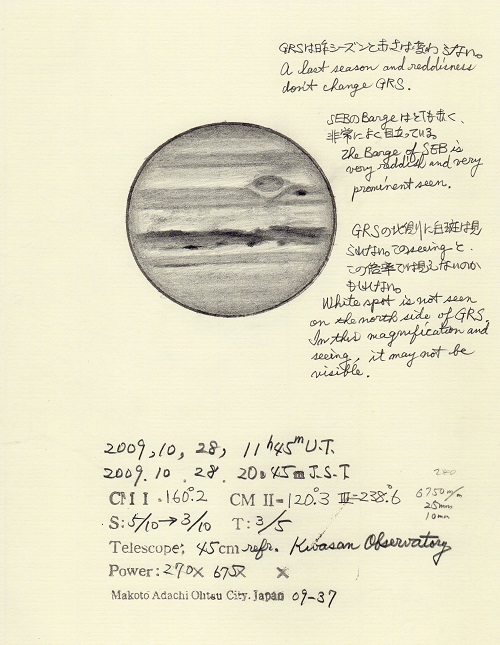 GRSは昨シーズンと赤さは変わらない。
A last season and reddisness
don't change GRS.
SEBのBargeはとても赤く、
非常によく目立っている。
The Barge of SEB is
very reddish and very
prominent seen.
GRSの北側に白斑は見
られない。このseeingと、
この倍率では見えないのか
もしれない。
White spot is not seen
on the north side of GRS.
In this magnification and
seeing, it may not be
visible.
2009, 10, 28, 11h45m U.T.
2009. 10. 28. 20h45m J.S.T
CM I = 160°.2 CM II = 120°.3 III=238°.6
S: 5/10→3/10 T: 3/5
Telescope; 45cm refr. Kwasan Observatory
Power: 270× 675× ×
Makoto Adachi Ohtsu City. Japan 09-37
25mm
10mm